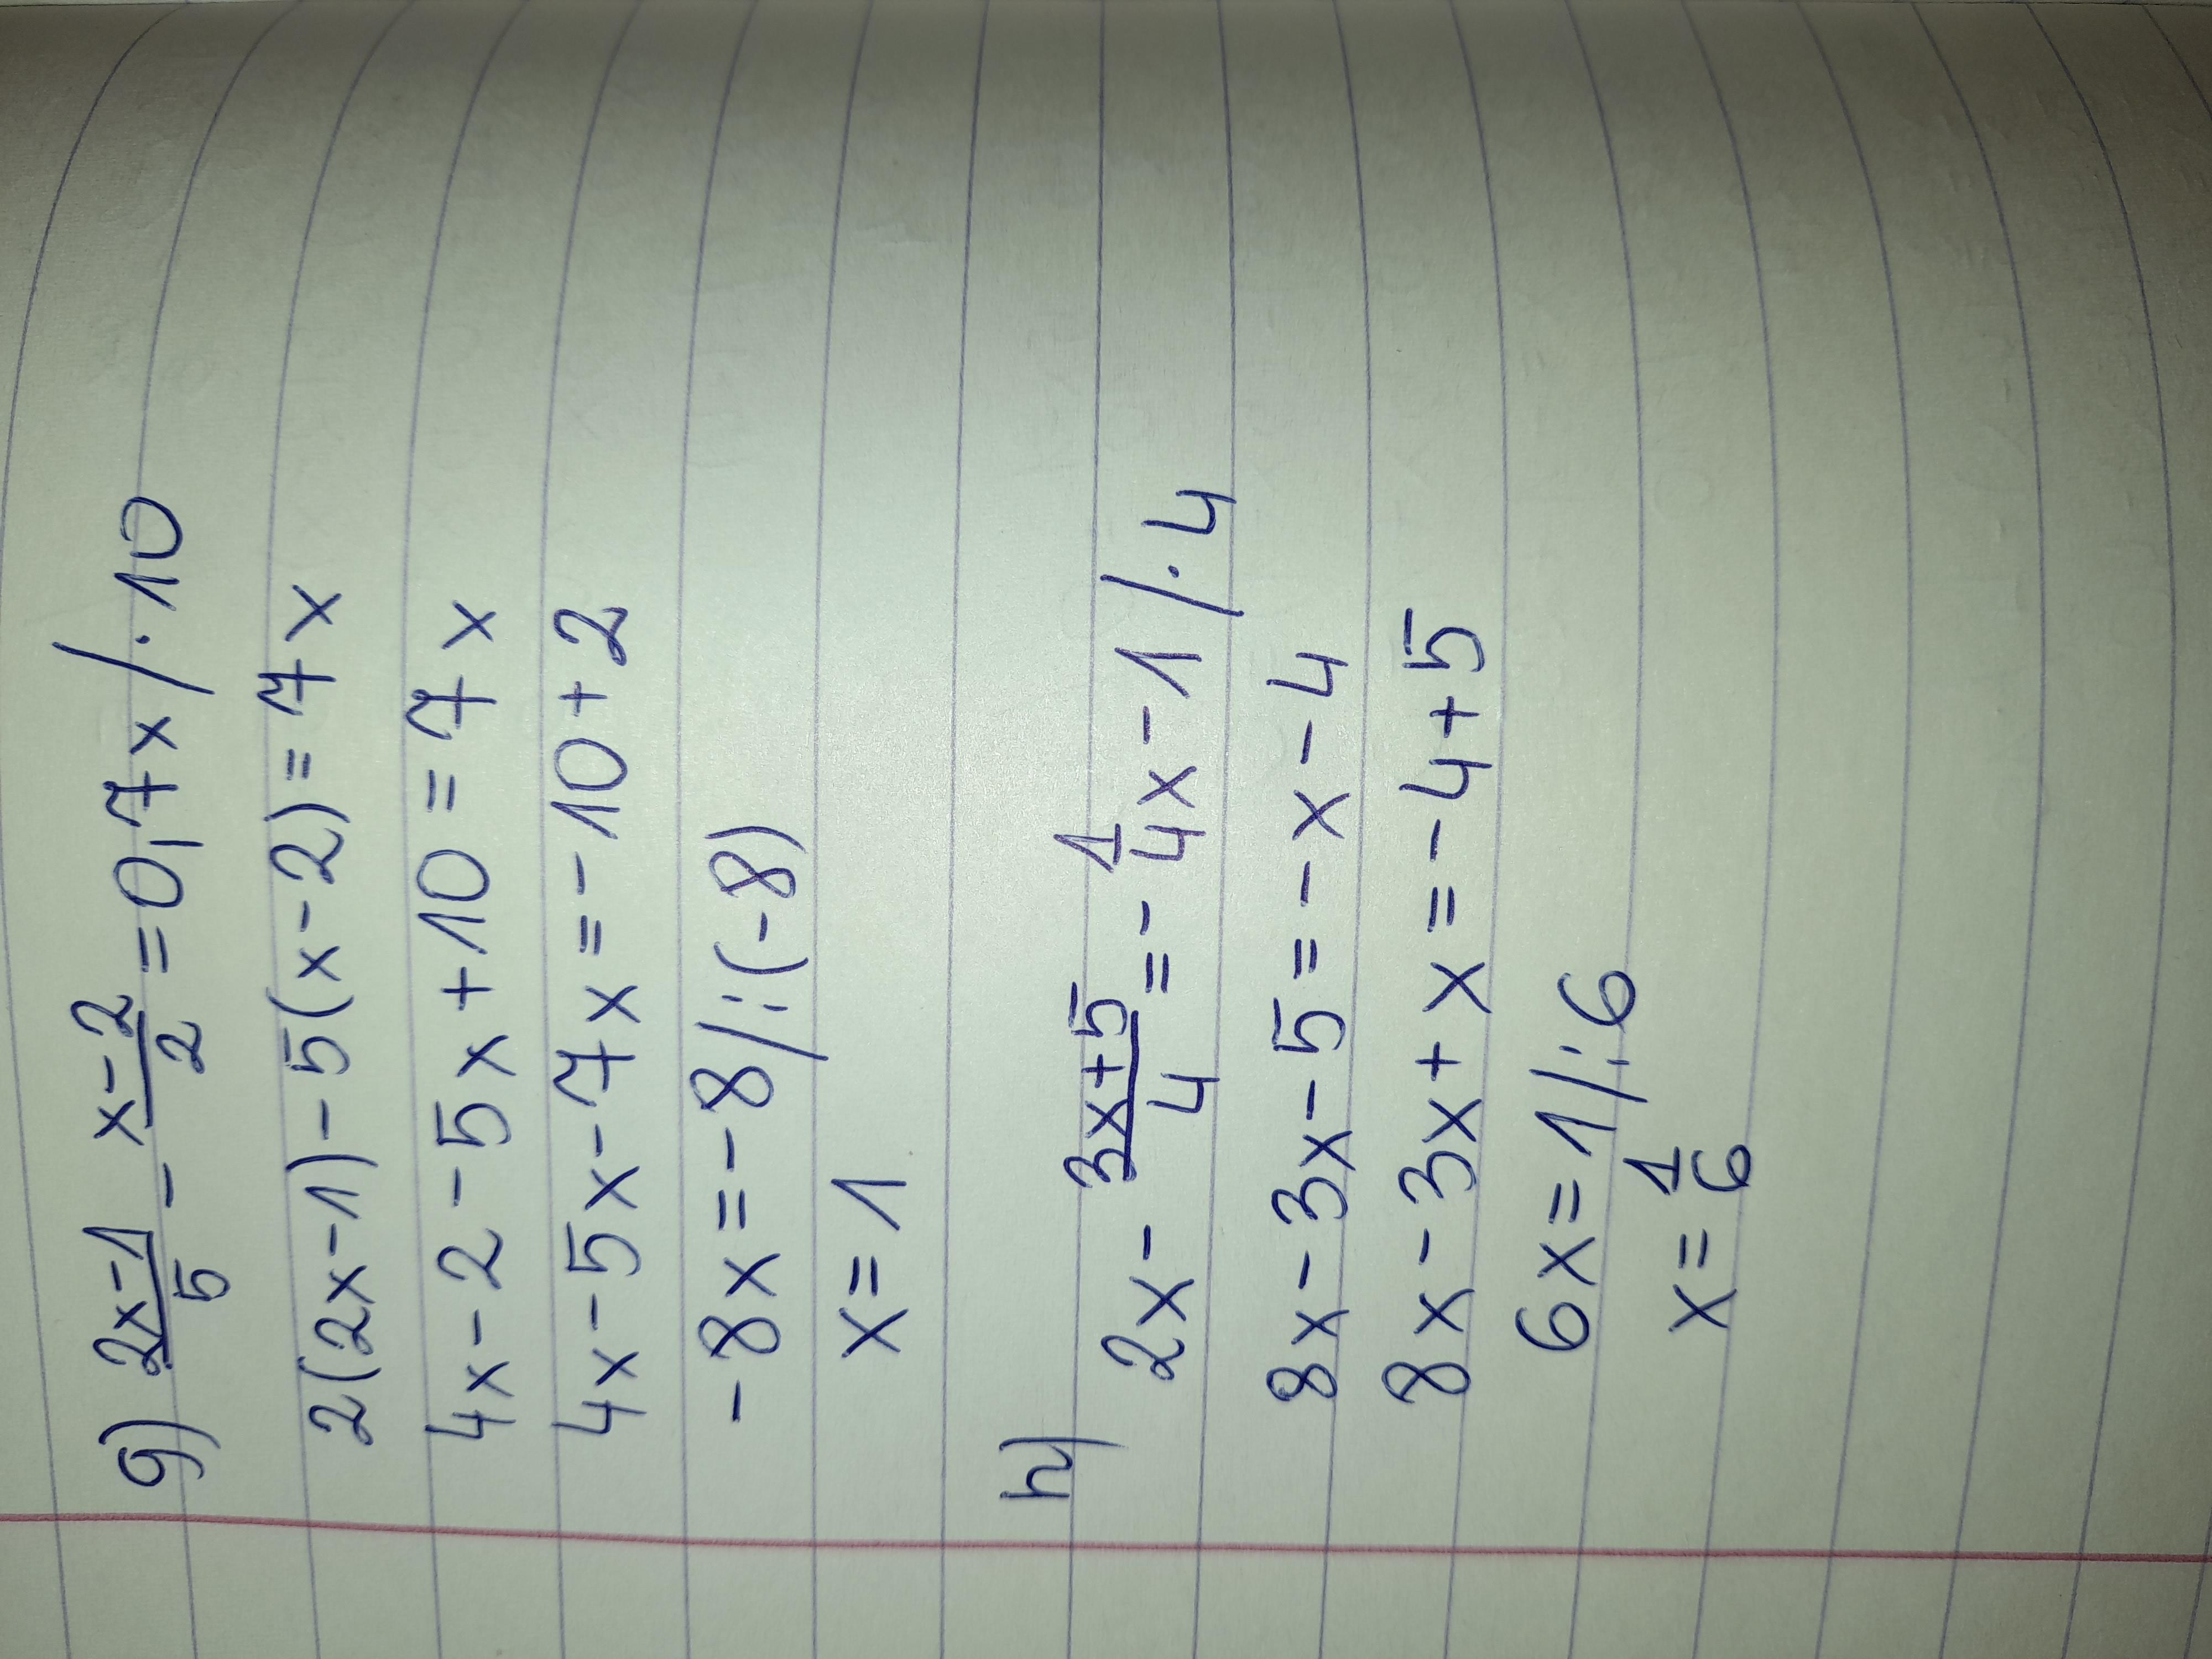 g) \frac{2x-1}{5} - \frac{x-2}{2} = 0,7x /·10
2(2x-1)-5(x-2)=7x
4x-2-5x+10=7x
4x-5x-7x=-10+2
-8x=-8/:(-8)
x=1
h)
2x - \frac{3x+5}{4} = -\frac{1}{4}x-1 /·4
8x-3x-5=-x-4
8x-3x+x=-4+5
6x=1/:6
x=\frac{1}{6}